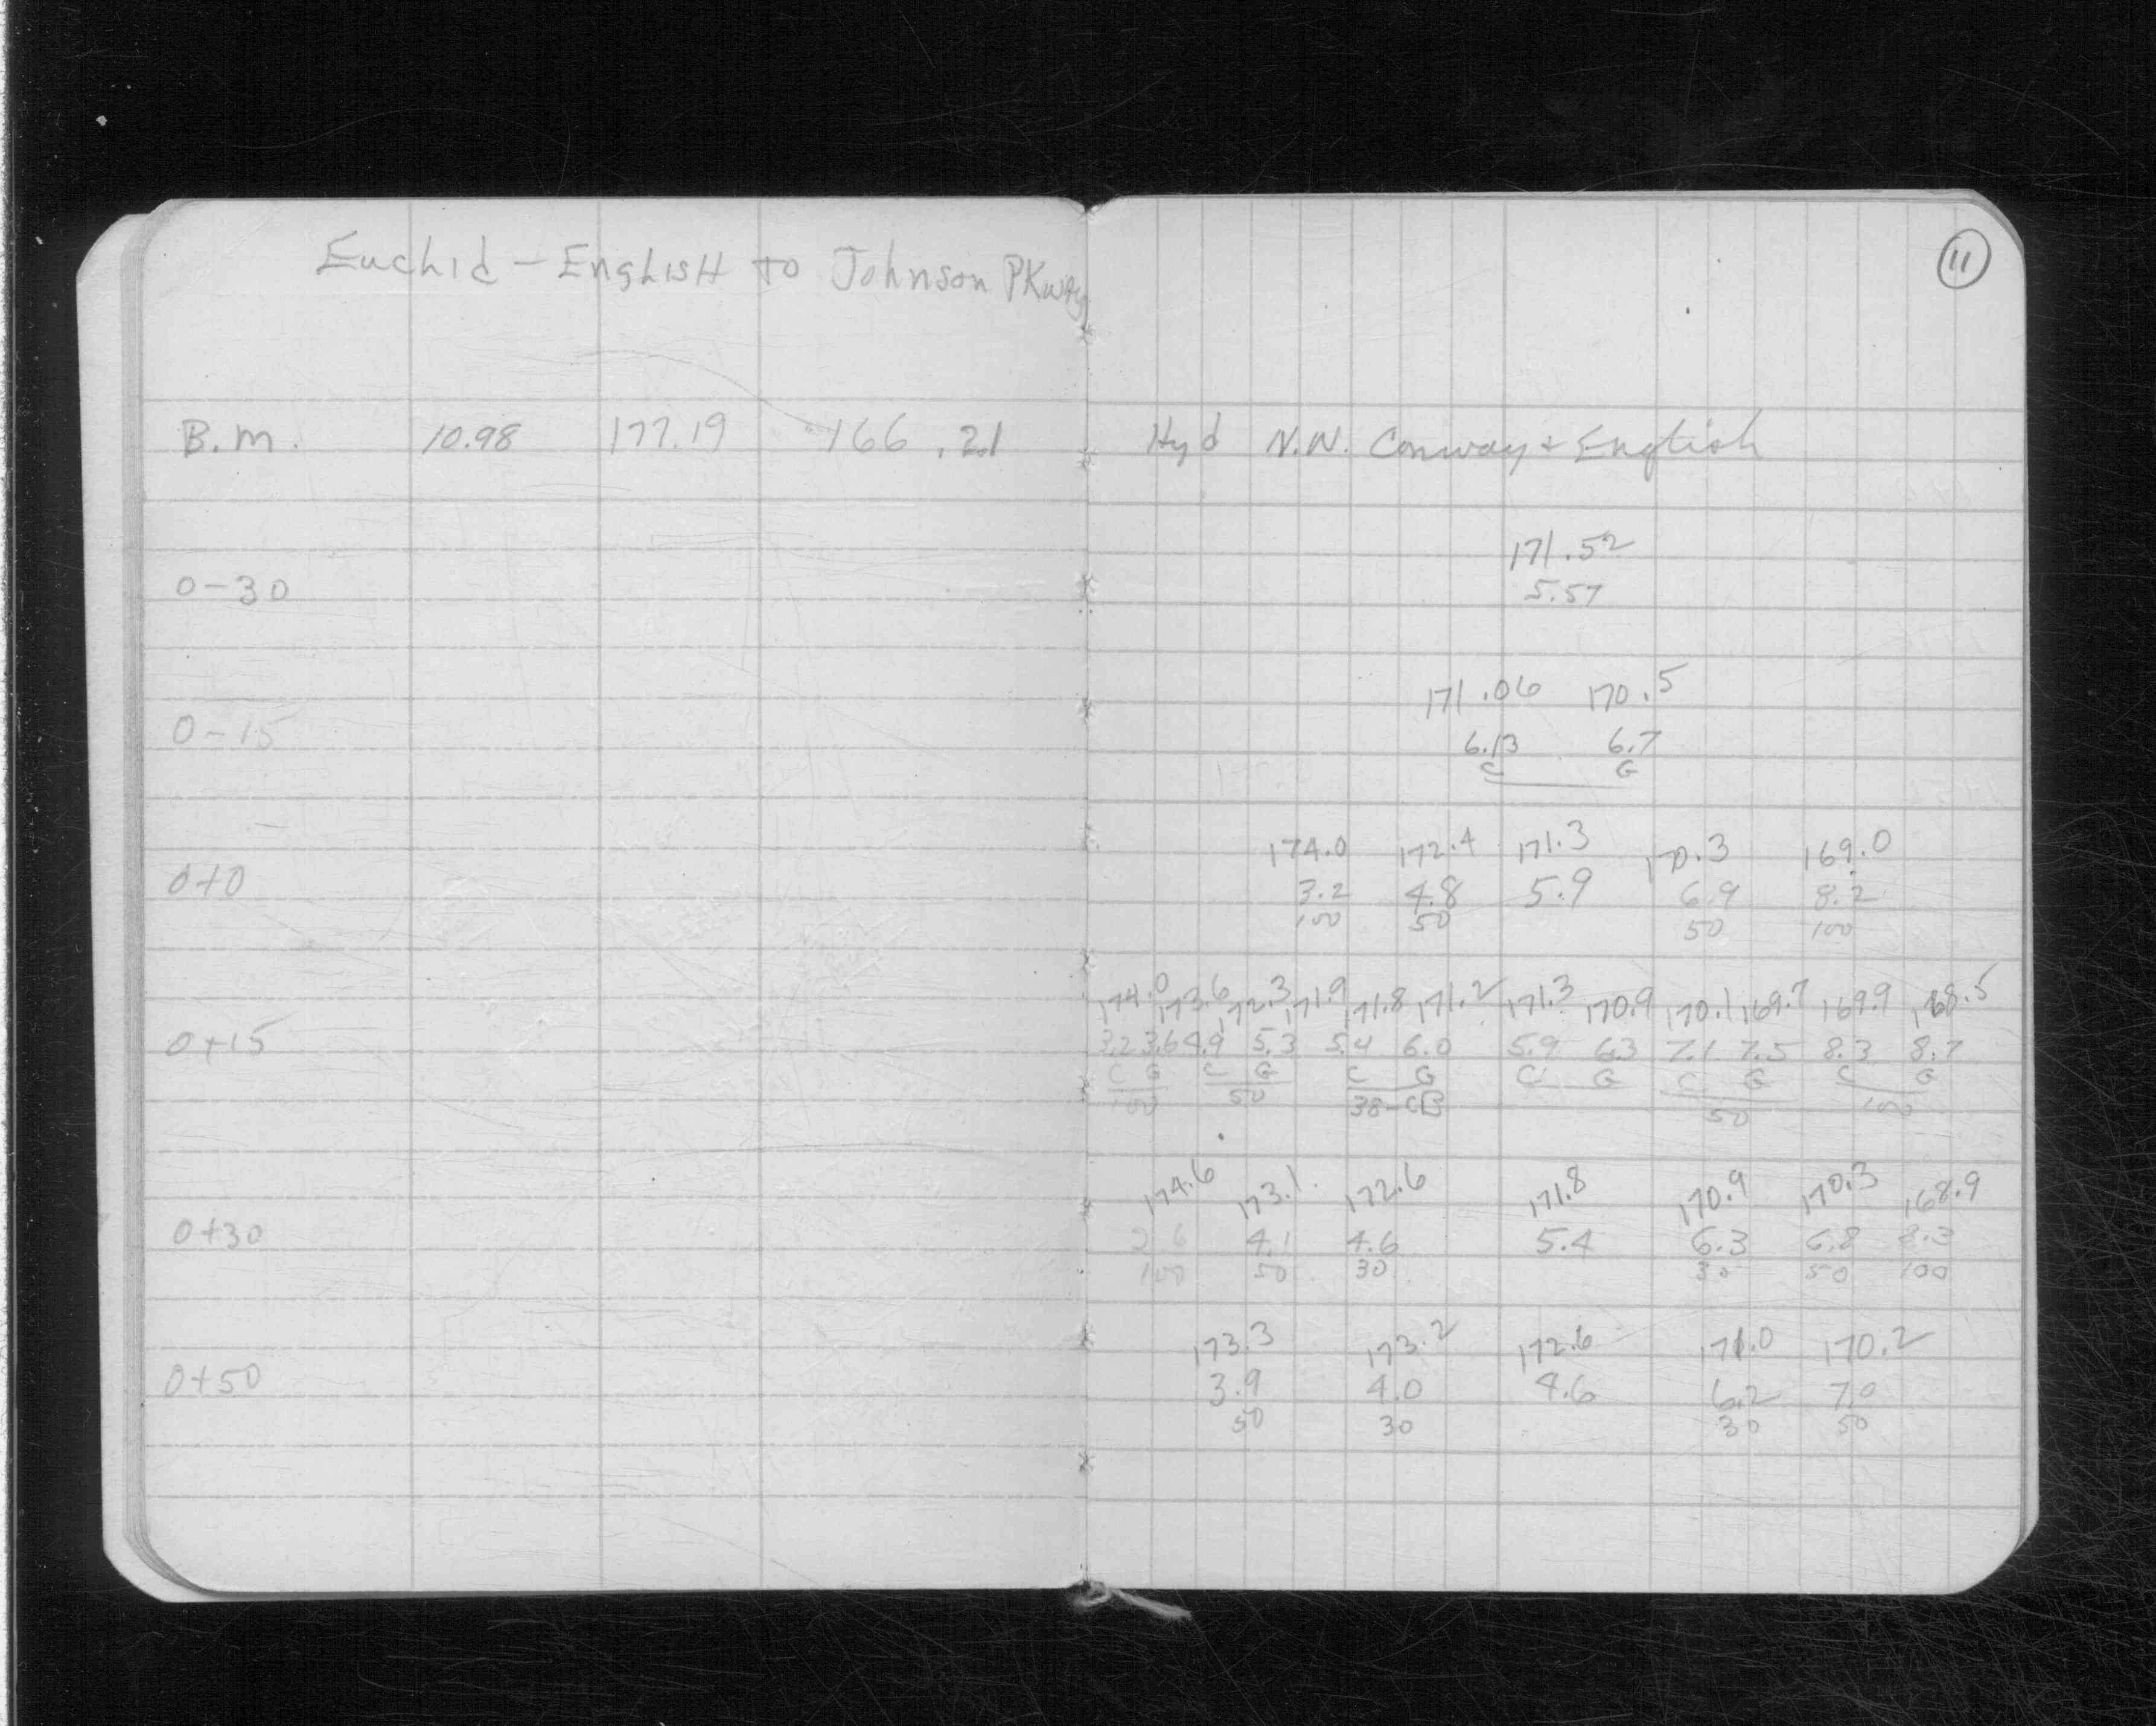 Euclid - English to Johnson PKway
11
B.M. 10.98 177.19 166.21 Hyd N.W. Conway + English
171.52
0-30 5.57
171.06 170.5
0-15 6.13 6.7
C G
174.0 172.4 171.3 170.3 169.0
0+0 3.2 4.8 5.9 6.9 8.2
100 50 50 100
174.0 173.6 172.3 171.9 171.8 171.2 171.3 170.9 170.1 169.7 169.9 168.5
0+15 3.2 3.6 4.9 5.3 5.4 6.0 5.9 6.3 7.1 7.5 8.3 8.7
C G C G C G C G C G C G
100 50 38-CB 50 100
174.6 173.1 172.6 171.8 170.9 170.3 168.9
0+30 2.6 4.1 4.6 5.4 6.3 6.8 8.3
100 50 30 30 50 100
173.3 173.2 172.6 171.0 170.2
0+50 3.9 4.0 4.6 6.2 7.0
50 30 30 50